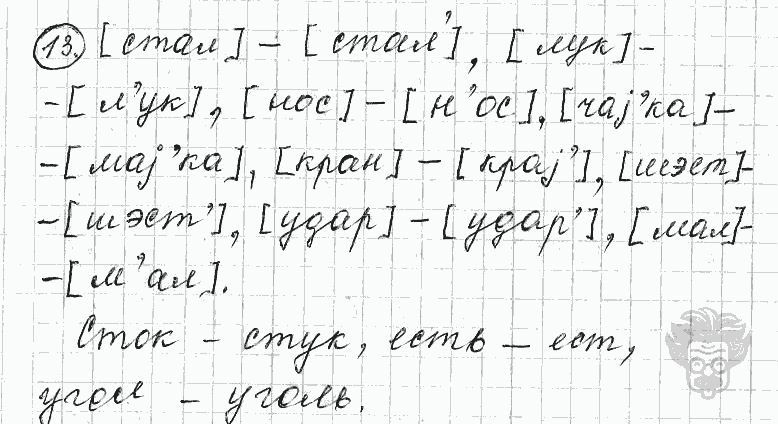 13. [стал] – [стал’], [лук] –
– [л’ук], [нос] – [н’ос], [чаj’ка] –
– [маj’ка], [кран] – [краj’], [шэст] –
– [шэст’], [удар] – [удар’], [мал] –
– [м’ал].
Сток – стук, есть – ест,
угол – уголь.